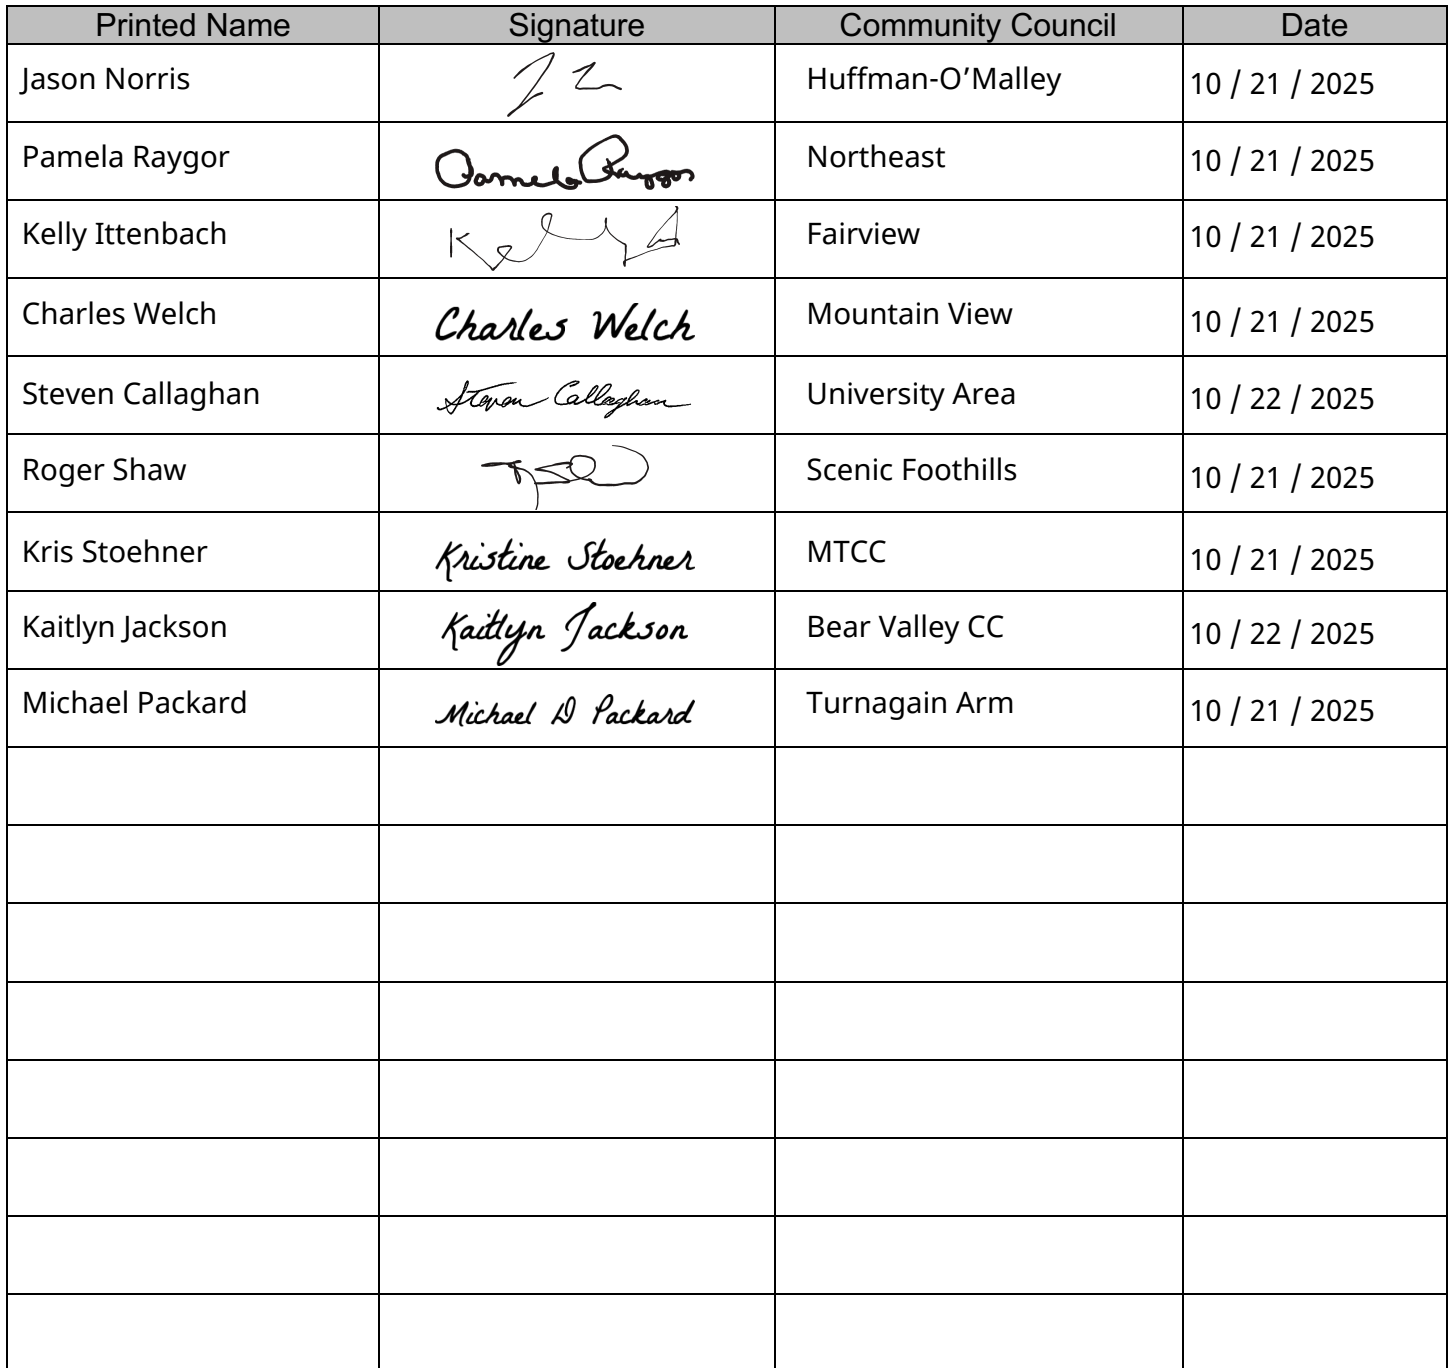 Printed Name Signature Community Council Date
Jason Norris Huffman-O’Malley 10 / 21 / 2025
Pamela Raygor Pamela Raygor Northeast 10 / 21 / 2025
Kelly Ittenbach Kelly Fairview 10 / 21 / 2025
Charles Welch Charles Welch Mountain View 10 / 21 / 2025
Steven Callaghan Steven Callaghan University Area 10 / 22 / 2025
Roger Shaw Scenic Foothills 10 / 21 / 2025
Kris Stoehner Kristine Stoehner MTCC 10 / 21 / 2025
Kaitlyn Jackson Kaitlyn Jackson Bear Valley CC 10 / 22 / 2025
Michael Packard Michael D Packard Turnagain Arm 10 / 21 / 2025